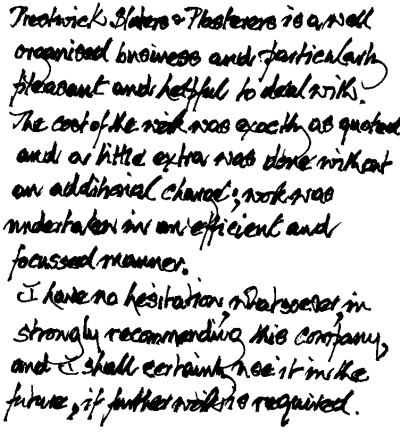 Prestwick Slaters & Plasterers is a well
organised business and particularly
pleasant and helpful to deal with.
The cost of the work was exactly as quoted
and a little extra was done without
an additional charge; work was
undertaken in an efficient and
focussed manner.
I have no hesitation, whatsoever, in
strongly recommending this company,
and I shall certainly use it in the
future, if further work is required.